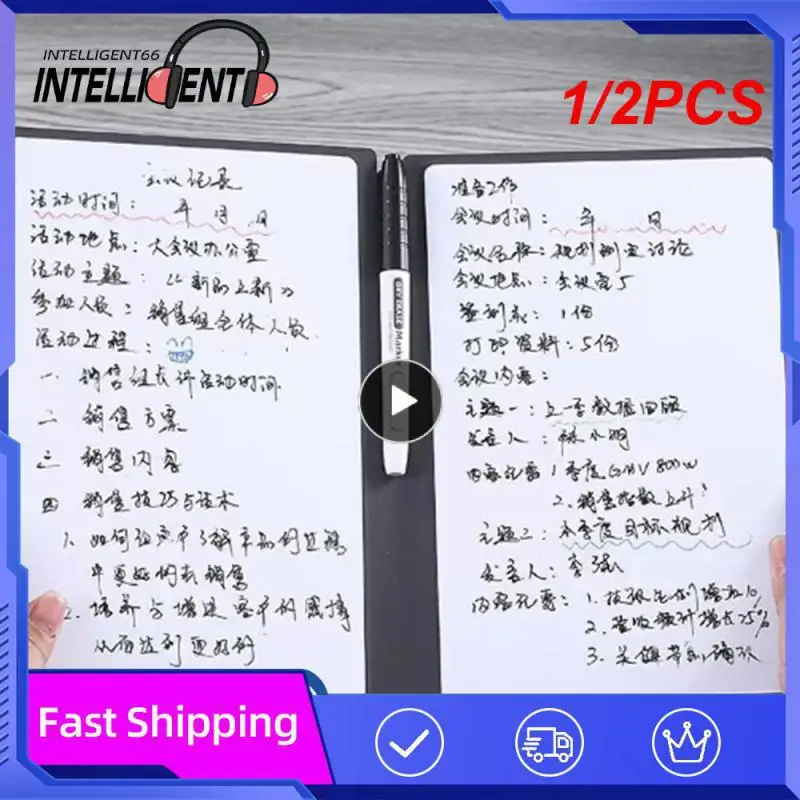 INTELLIGENT66
INTELLIGENT
1/2PCS
会议记录
活动时间： 年 月 日
活动地点：大会议办公室
活动主题："新的上新"
参加人员：销售组全体人员
活动过程：
一 销售组长讲活动时间
二 销售方案
三 销售内容
四 销售技巧与话术
1、如何
中更好的去销售
2、培养与增进客户的感情
从而达到更好的
DRY ERASE Marker
准备工作
会议时间： 年 日
会议名称：规划制定讨论
会议地点：会议室5
签到表：1份
打印资料：5份
会议内容：
主题一：上一季数据回顾
发言人：林小明
内容记要 1季度GMV 800w
2.销售指数上升
主题二：本季度目标规划
发言人：李强
内容记要：1.
2.
3.
Fast Shipping